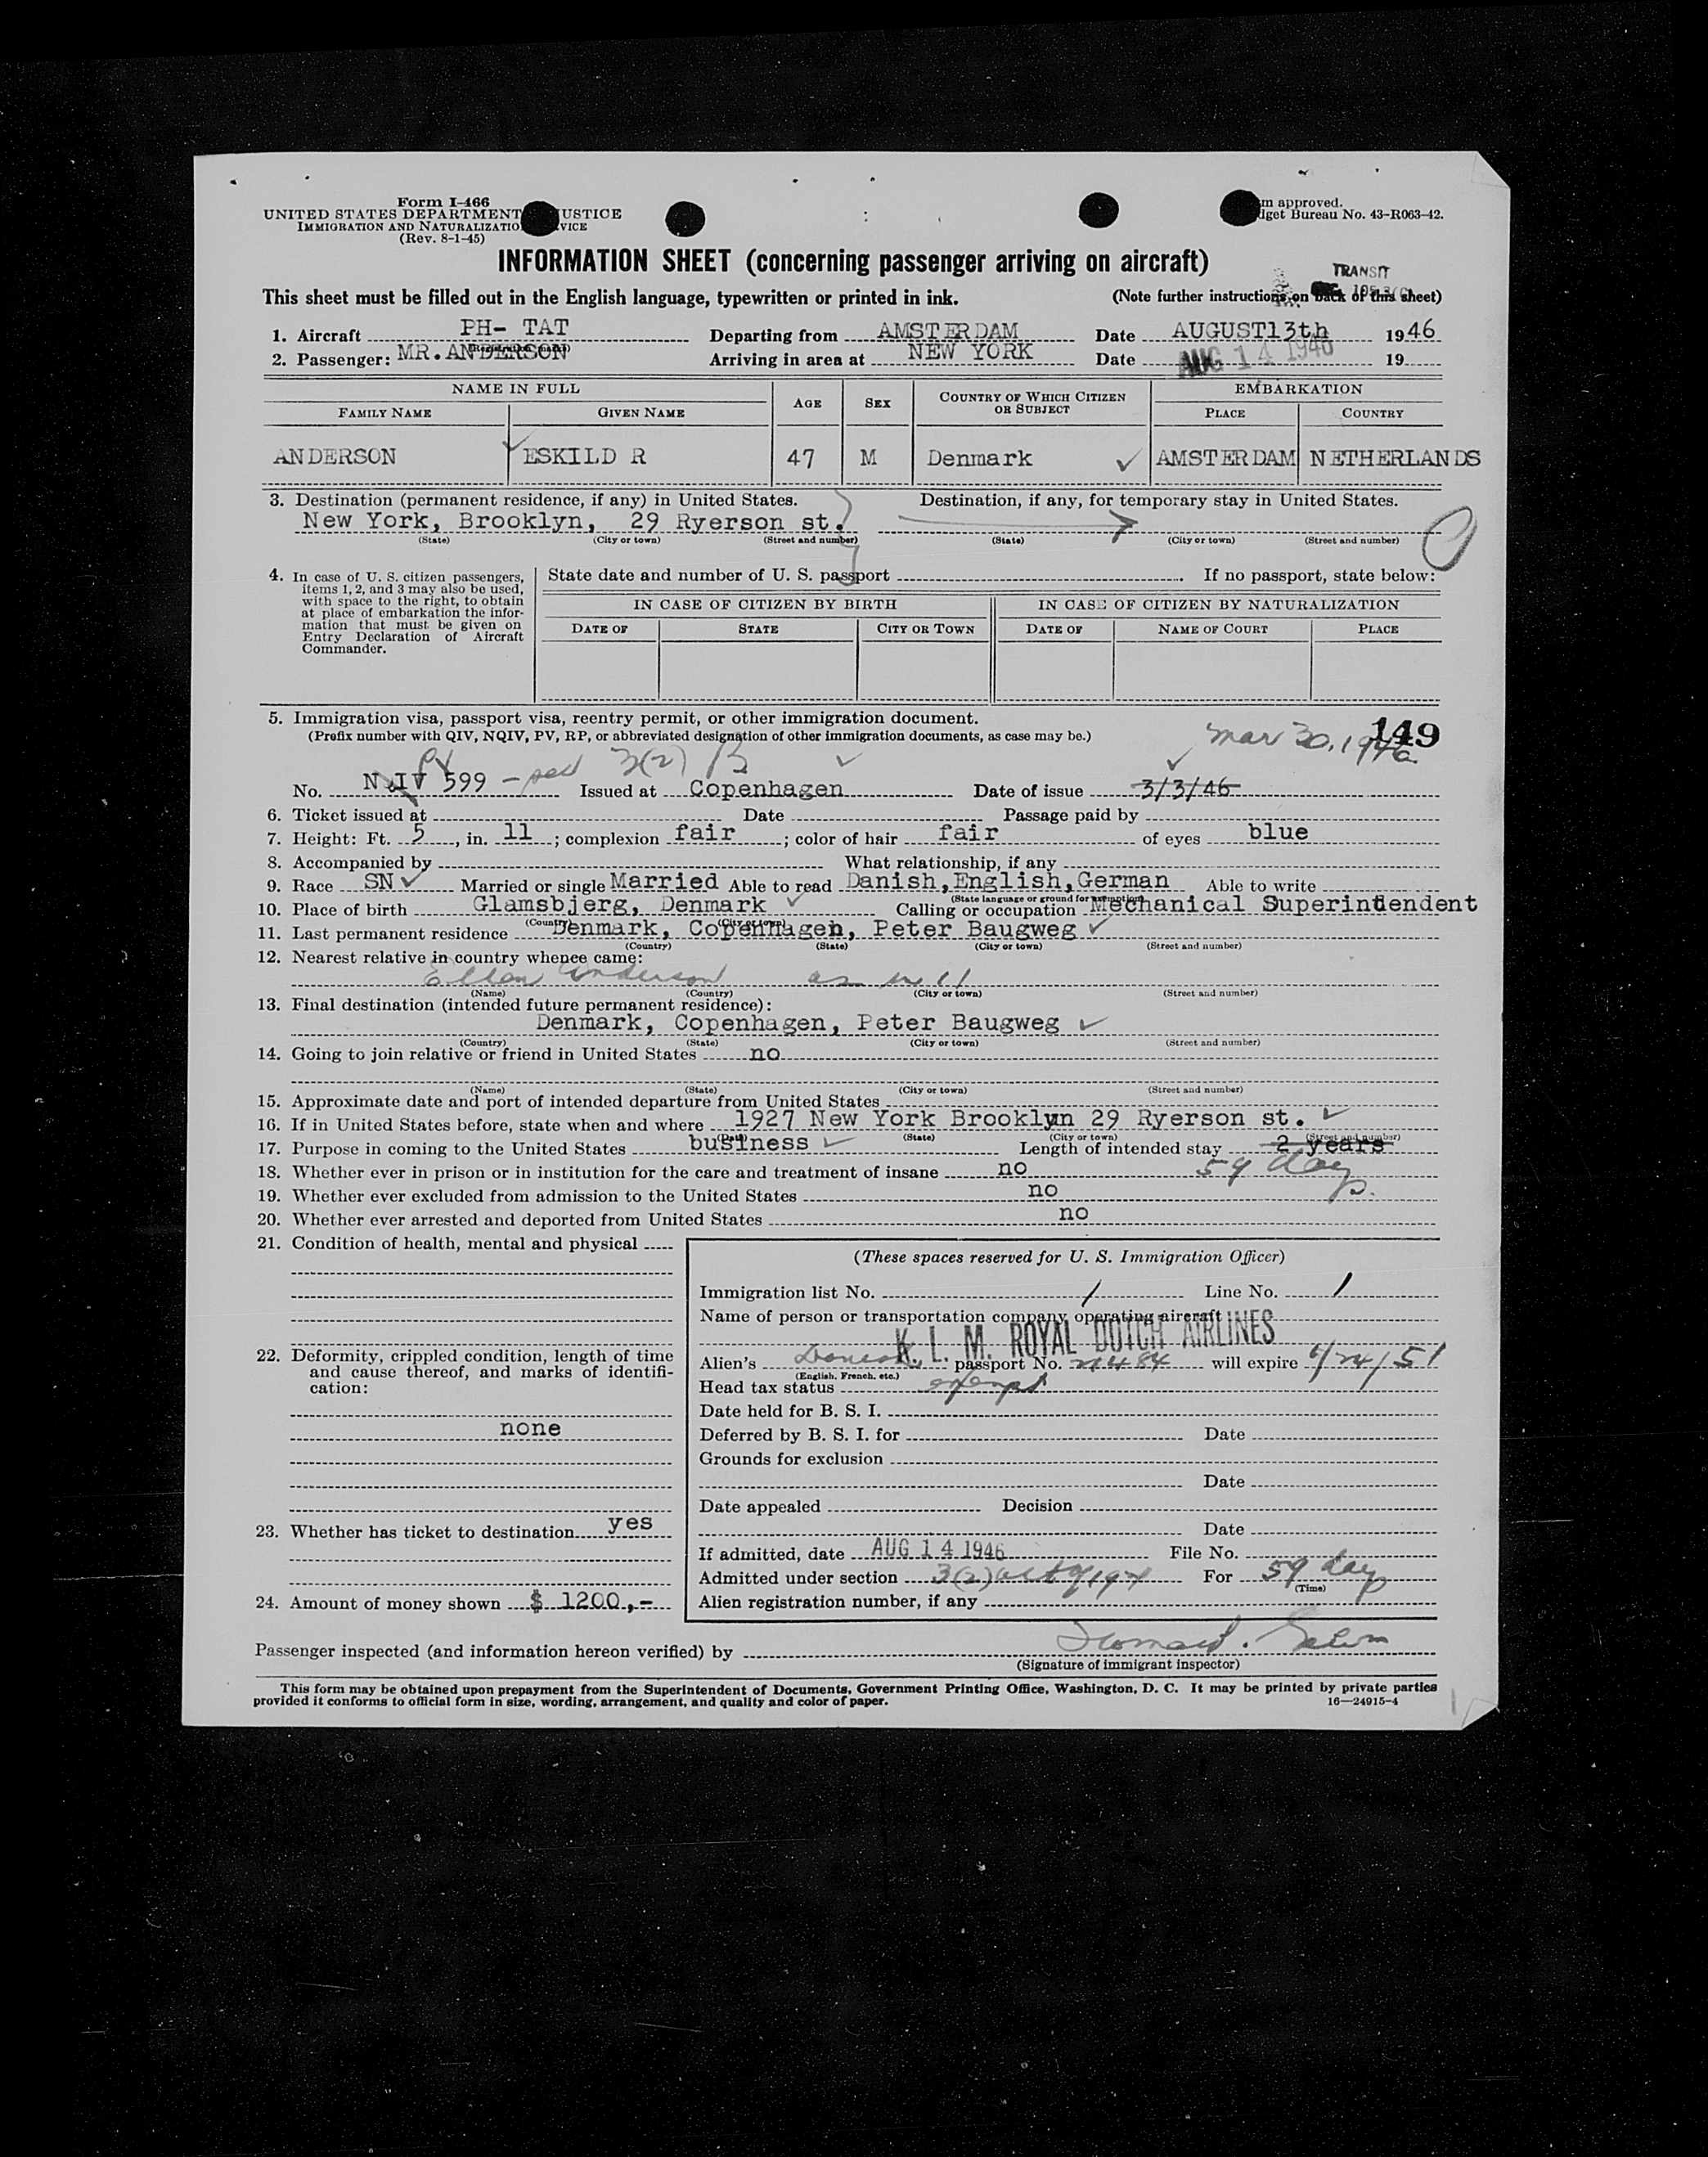 Form I-466
UNITED STATES DEPARTMENT USTICE
IMMIGRATION AND NATURALIZATIO VICE
(Rev. 8-1-45)
m approved.
dget Bureau No. 43-R063-42.
INFORMATION SHEET (concerning passenger arriving on aircraft)
TRANSIT
This sheet must be filled out in the English language, typewritten or printed in ink. (Note further instructions on back of this sheet)
1. Aircraft PH- TAT Departing from AMSTERDAM Date AUGUST13th 1946
(Registration mark)
2. Passenger: MR. ANDERSON Arriving in area at NEW YORK Date AUG 14 1946 19
NAME IN FULL AGE SEX COUNTRY OF WHICH CITIZEN OR SUBJECT EMBARKATION
FAMILY NAME GIVEN NAME PLACE COUNTRY
ANDERSON ESKILD R 47 M Denmark AMSTERDAM NETHERLANDS
3. Destination (permanent residence, if any) in United States. Destination, if any, for temporary stay in United States.
New York, Brooklyn, 29 Ryerson st.
(State) (City or town) (Street and number) (State) (City or town) (Street and number)
4. In case of U. S. citizen passengers, items 1, 2, and 3 may also be used, with space to the right, to obtain at place of embarkation the information that must be given on Entry Declaration of Aircraft Commander.
State date and number of U. S. passport If no passport, state below:
IN CASE OF CITIZEN BY BIRTH IN CASE OF CITIZEN BY NATURALIZATION
DATE OF STATE CITY OR TOWN DATE OF NAME OF COURT PLACE
5. Immigration visa, passport visa, reentry permit, or other immigration document.
(Prefix number with QIV, NQIV, PV, RP, or abbreviated designation of other immigration documents, as case may be.)
Mar 30, 1946 149
PV 3(2) B
No. NQIV 599 Issued at Copenhagen Date of issue 3/3/46
6. Ticket issued at Date Passage paid by
7. Height: Ft. 5, in. 11; complexion fair; color of hair fair of eyes blue
8. Accompanied by What relationship, if any
9. Race SN Married or single Married Able to read Danish, English, German Able to write
(State language or ground for exemption)
10. Place of birth Glamsbjerg, Denmark Calling or occupation Mechanical Superintendent
(Country) (City or town)
11. Last permanent residence Denmark, Copenhagen, Peter Baugweg
(Country) (State) (City or town) (Street and number)
12. Nearest relative in country whence came:
Ellen Anderson as in 11
(Name) (Country) (City or town) (Street and number)
13. Final destination (intended future permanent residence):
Denmark, Copenhagen, Peter Baugweg
(Country) (State) (City or town) (Street and number)
14. Going to join relative or friend in United States no
(Name) (State) (City or town) (Street and number)
15. Approximate date and port of intended departure from United States
16. If in United States before, state when and where 1927 New York Brooklyn 29 Ryerson st.
(Date) (State) (City or town) (Street and number)
17. Purpose in coming to the United States business Length of intended stay 2 years
59 days.
18. Whether ever in prison or in institution for the care and treatment of insane no
19. Whether ever excluded from admission to the United States no
20. Whether ever arrested and deported from United States no
21. Condition of health, mental and physical
22. Deformity, crippled condition, length of time and cause thereof, and marks of identification:
none
23. Whether has ticket to destination yes
24. Amount of money shown $ 1200,-
(These spaces reserved for U. S. Immigration Officer)
Immigration list No. 1 Line No. 1
Name of person or transportation company operating aircraft
K. L. M. ROYAL DUTCH AIRLINES
Alien's Danish passport No. 21484 will expire 4/24/51
(English, French, etc.)
Head tax status exempt
Date held for B. S. I.
Deferred by B. S. I. for Date
Grounds for exclusion
Date
Date appealed Decision
Date
If admitted, date AUG 14 1946 File No.
Admitted under section 3(2) act of 1924 For 59 days
(Time)
Alien registration number, if any
Passenger inspected (and information hereon verified) by
(Signature of immigrant inspector)
This form may be obtained upon prepayment from the Superintendent of Documents, Government Printing Office, Washington, D. C. It may be printed by private parties
provided it conforms to official form in size, wording, arrangement, and quality and color of paper. 16—24915-4